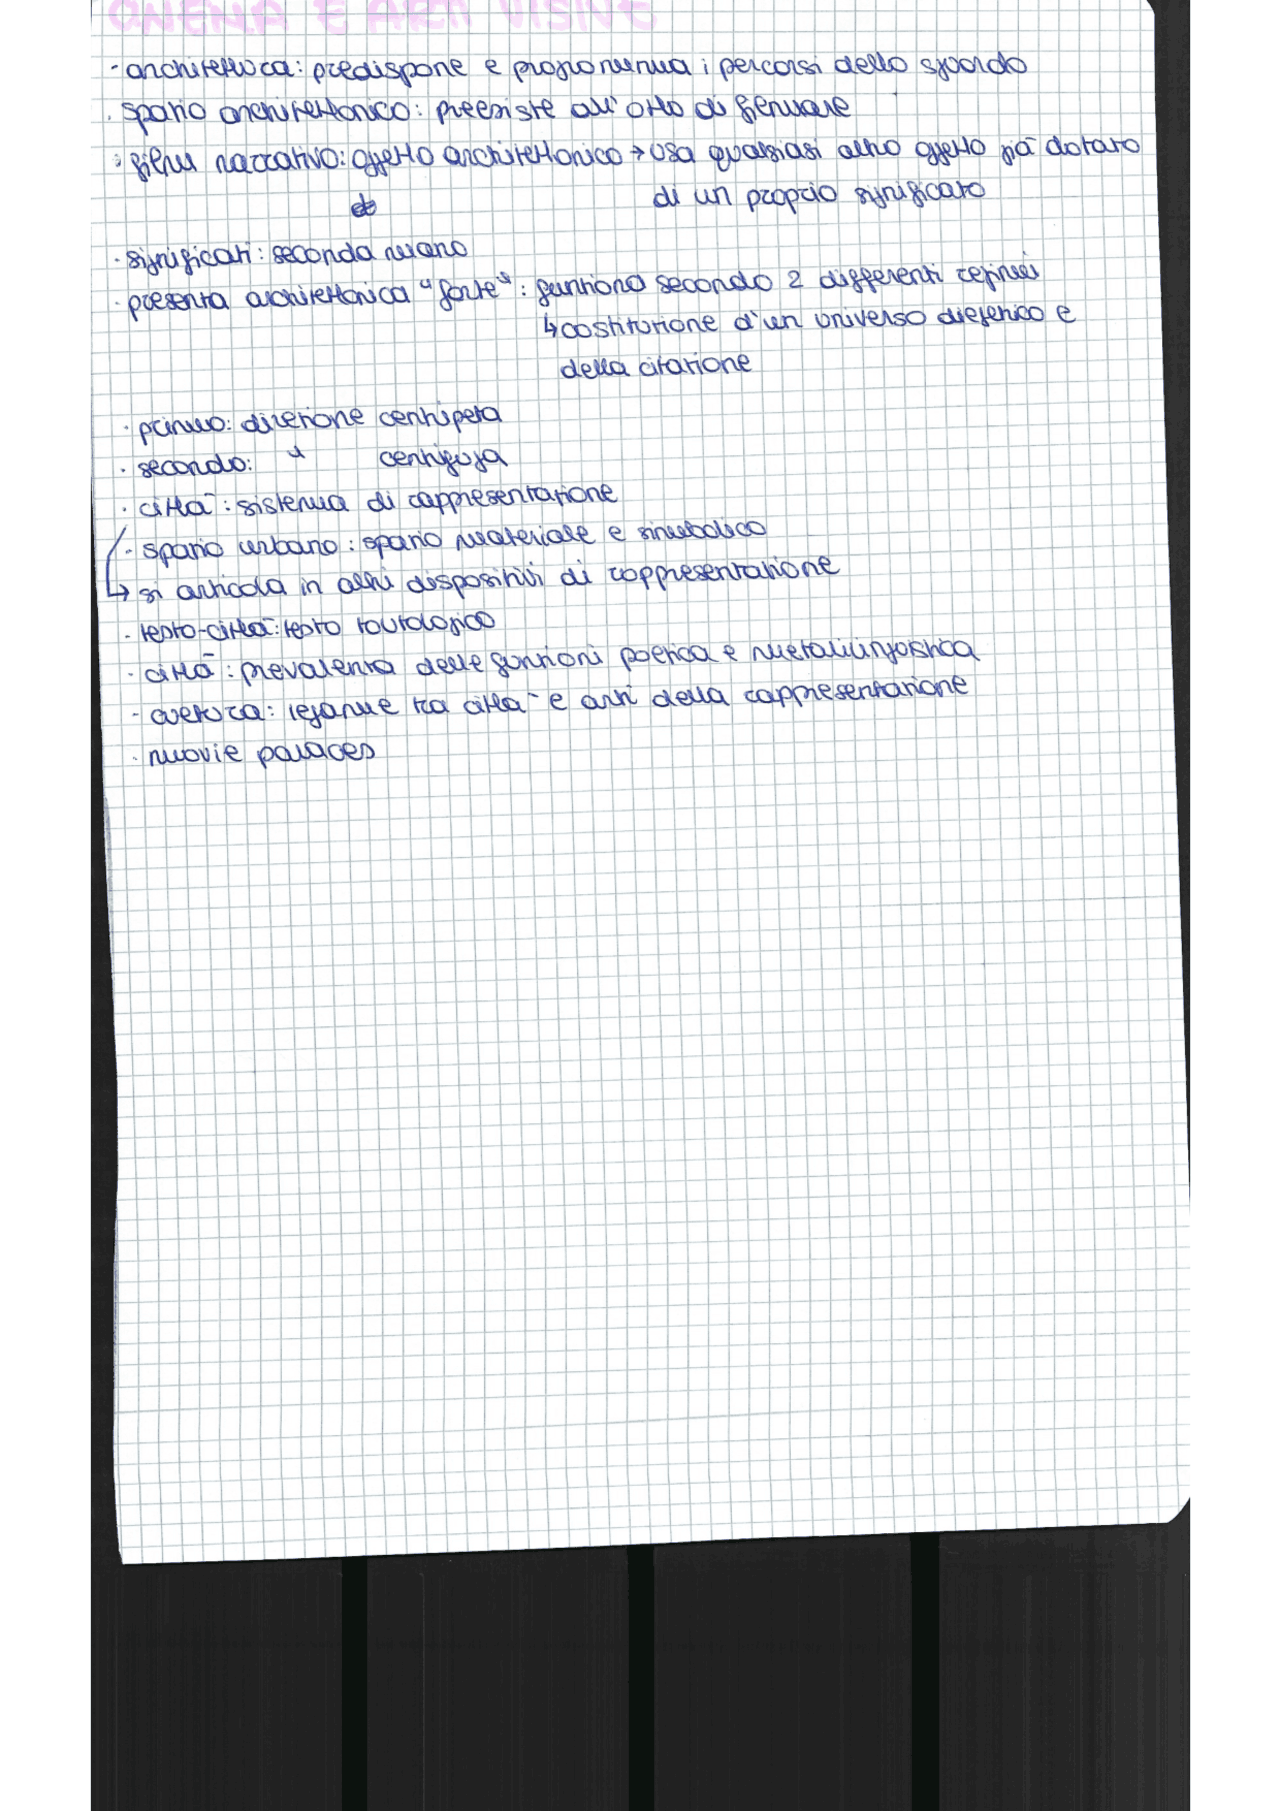 CINEMA E ARTI VISIVE
- architettura: predispone e programma i percorsi dello sguardo
. spazio architettonico: preesiste all'atto di filmare
. film narrativo: oggetto architettonico → usa qualsiasi altro oggetto già dotato
di un proprio significato
. significati: seconda mano
. presenza architettonica "forte": funziona secondo 2 differenti regimi
↳ costituzione d'un universo diegetico e
della citazione
. primo: direzione centripeta
. secondo: " centrifuga
. città: sistema di rappresentazione
. spazio urbano: spazio materiale e simbolico
↳ si articola in altri dispositivi di rappresentazione
. testo-città: testo tautologico
. città: prevalenza delle funzioni poetica e metalinguistica
- legame tra città e arti della rappresentazione
. movie palaces